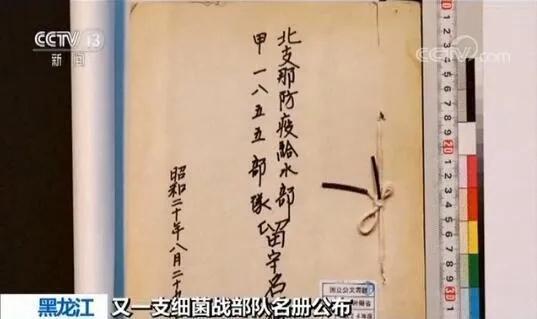 CCTV 13
新闻
CCTV.com
北支那防疫給水部
甲一八五五部隊
留守名
昭和二十年八月二十
黑龙江
又一支细菌战部队名册公布